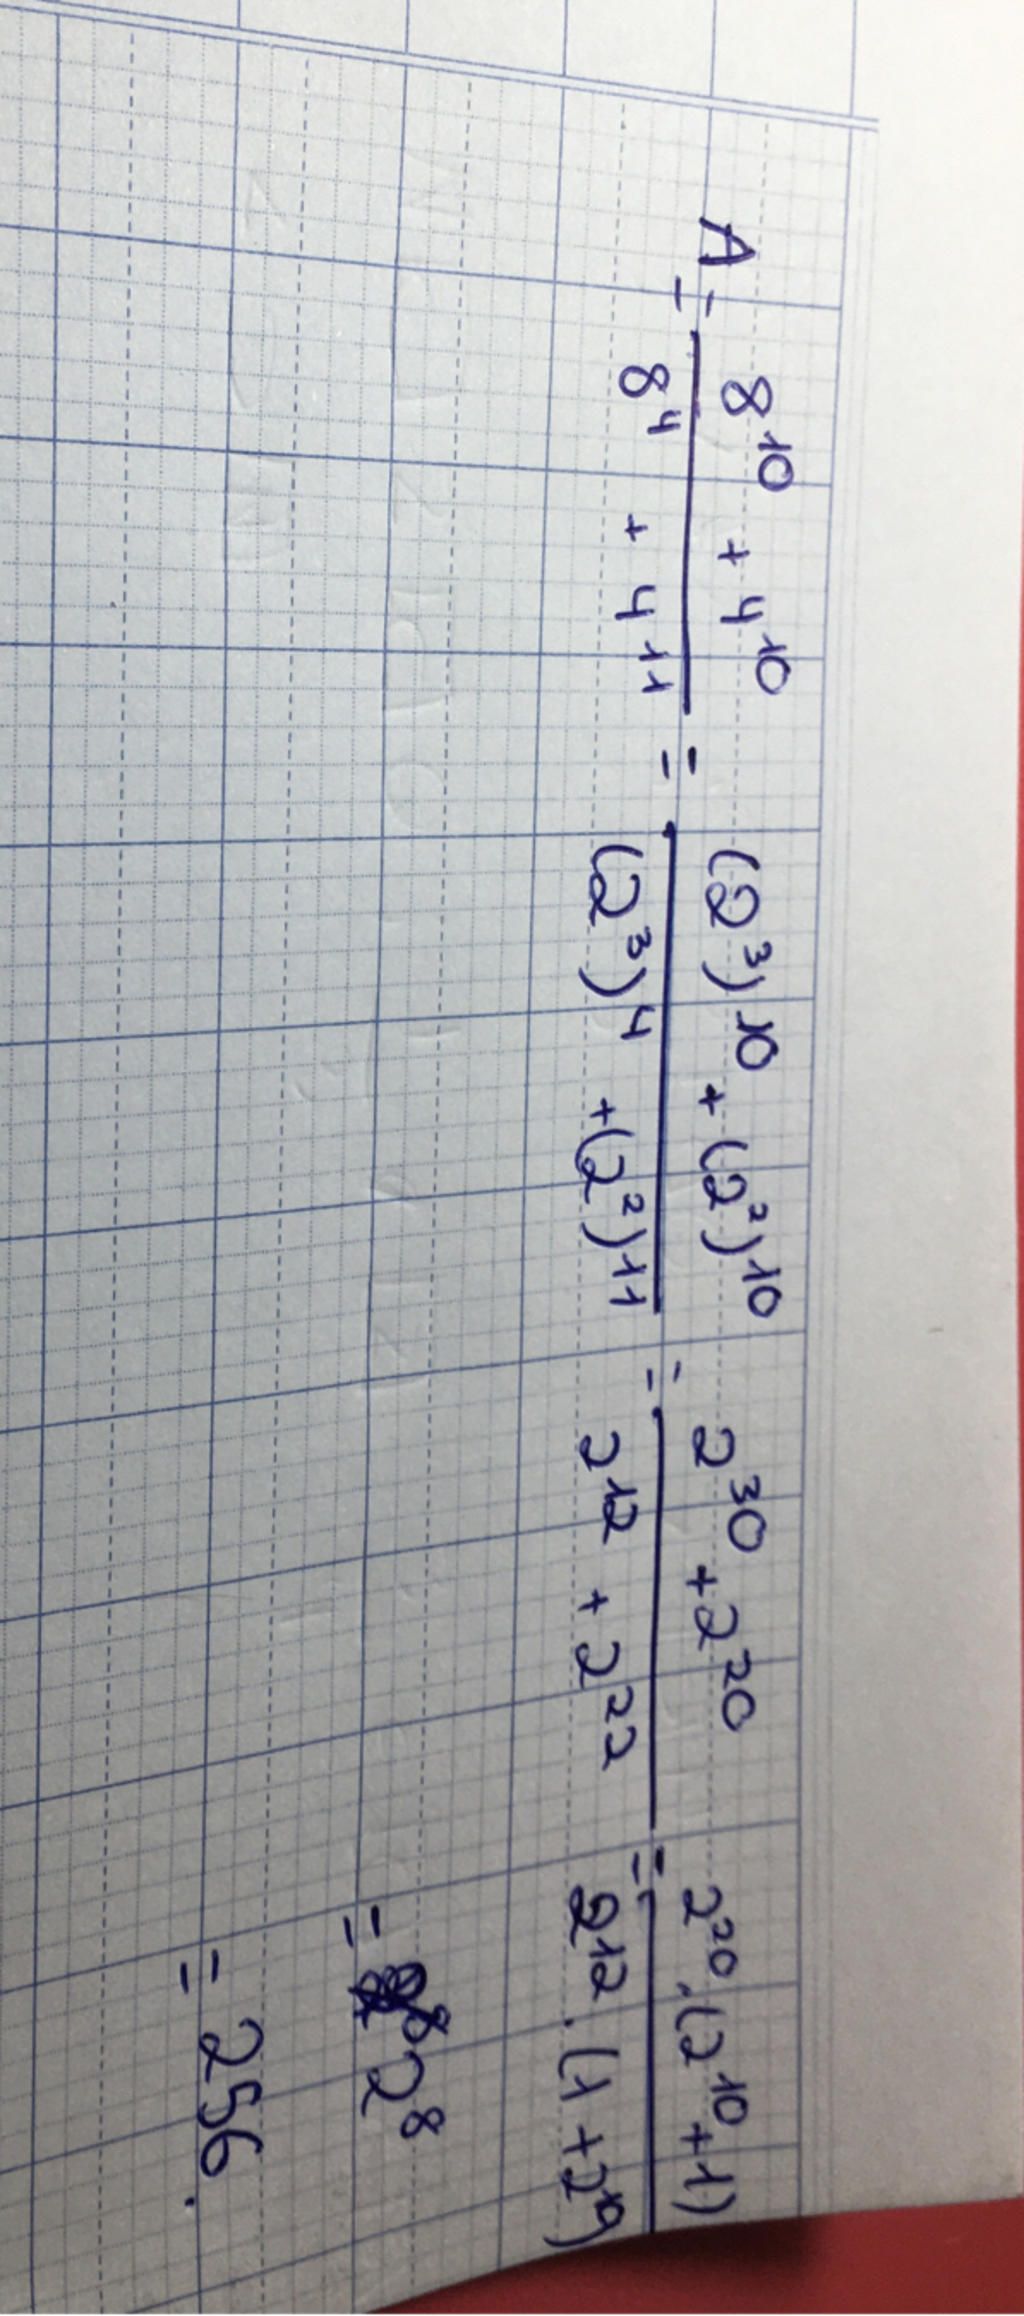 A = \frac{8^{10} + 4^{10}}{8^{4} + 4^{11}} = \frac{(2^{3})^{10} + (2^{2})^{10}}{(2^{3})^{4} + (2^{2})^{11}} = \frac{2^{30} + 2^{20}}{2^{12} + 2^{22}} = \frac{2^{20} . (2^{10} + 1)}{2^{12} . (1 + 2^{10})}
= 2^{8}
= 256.